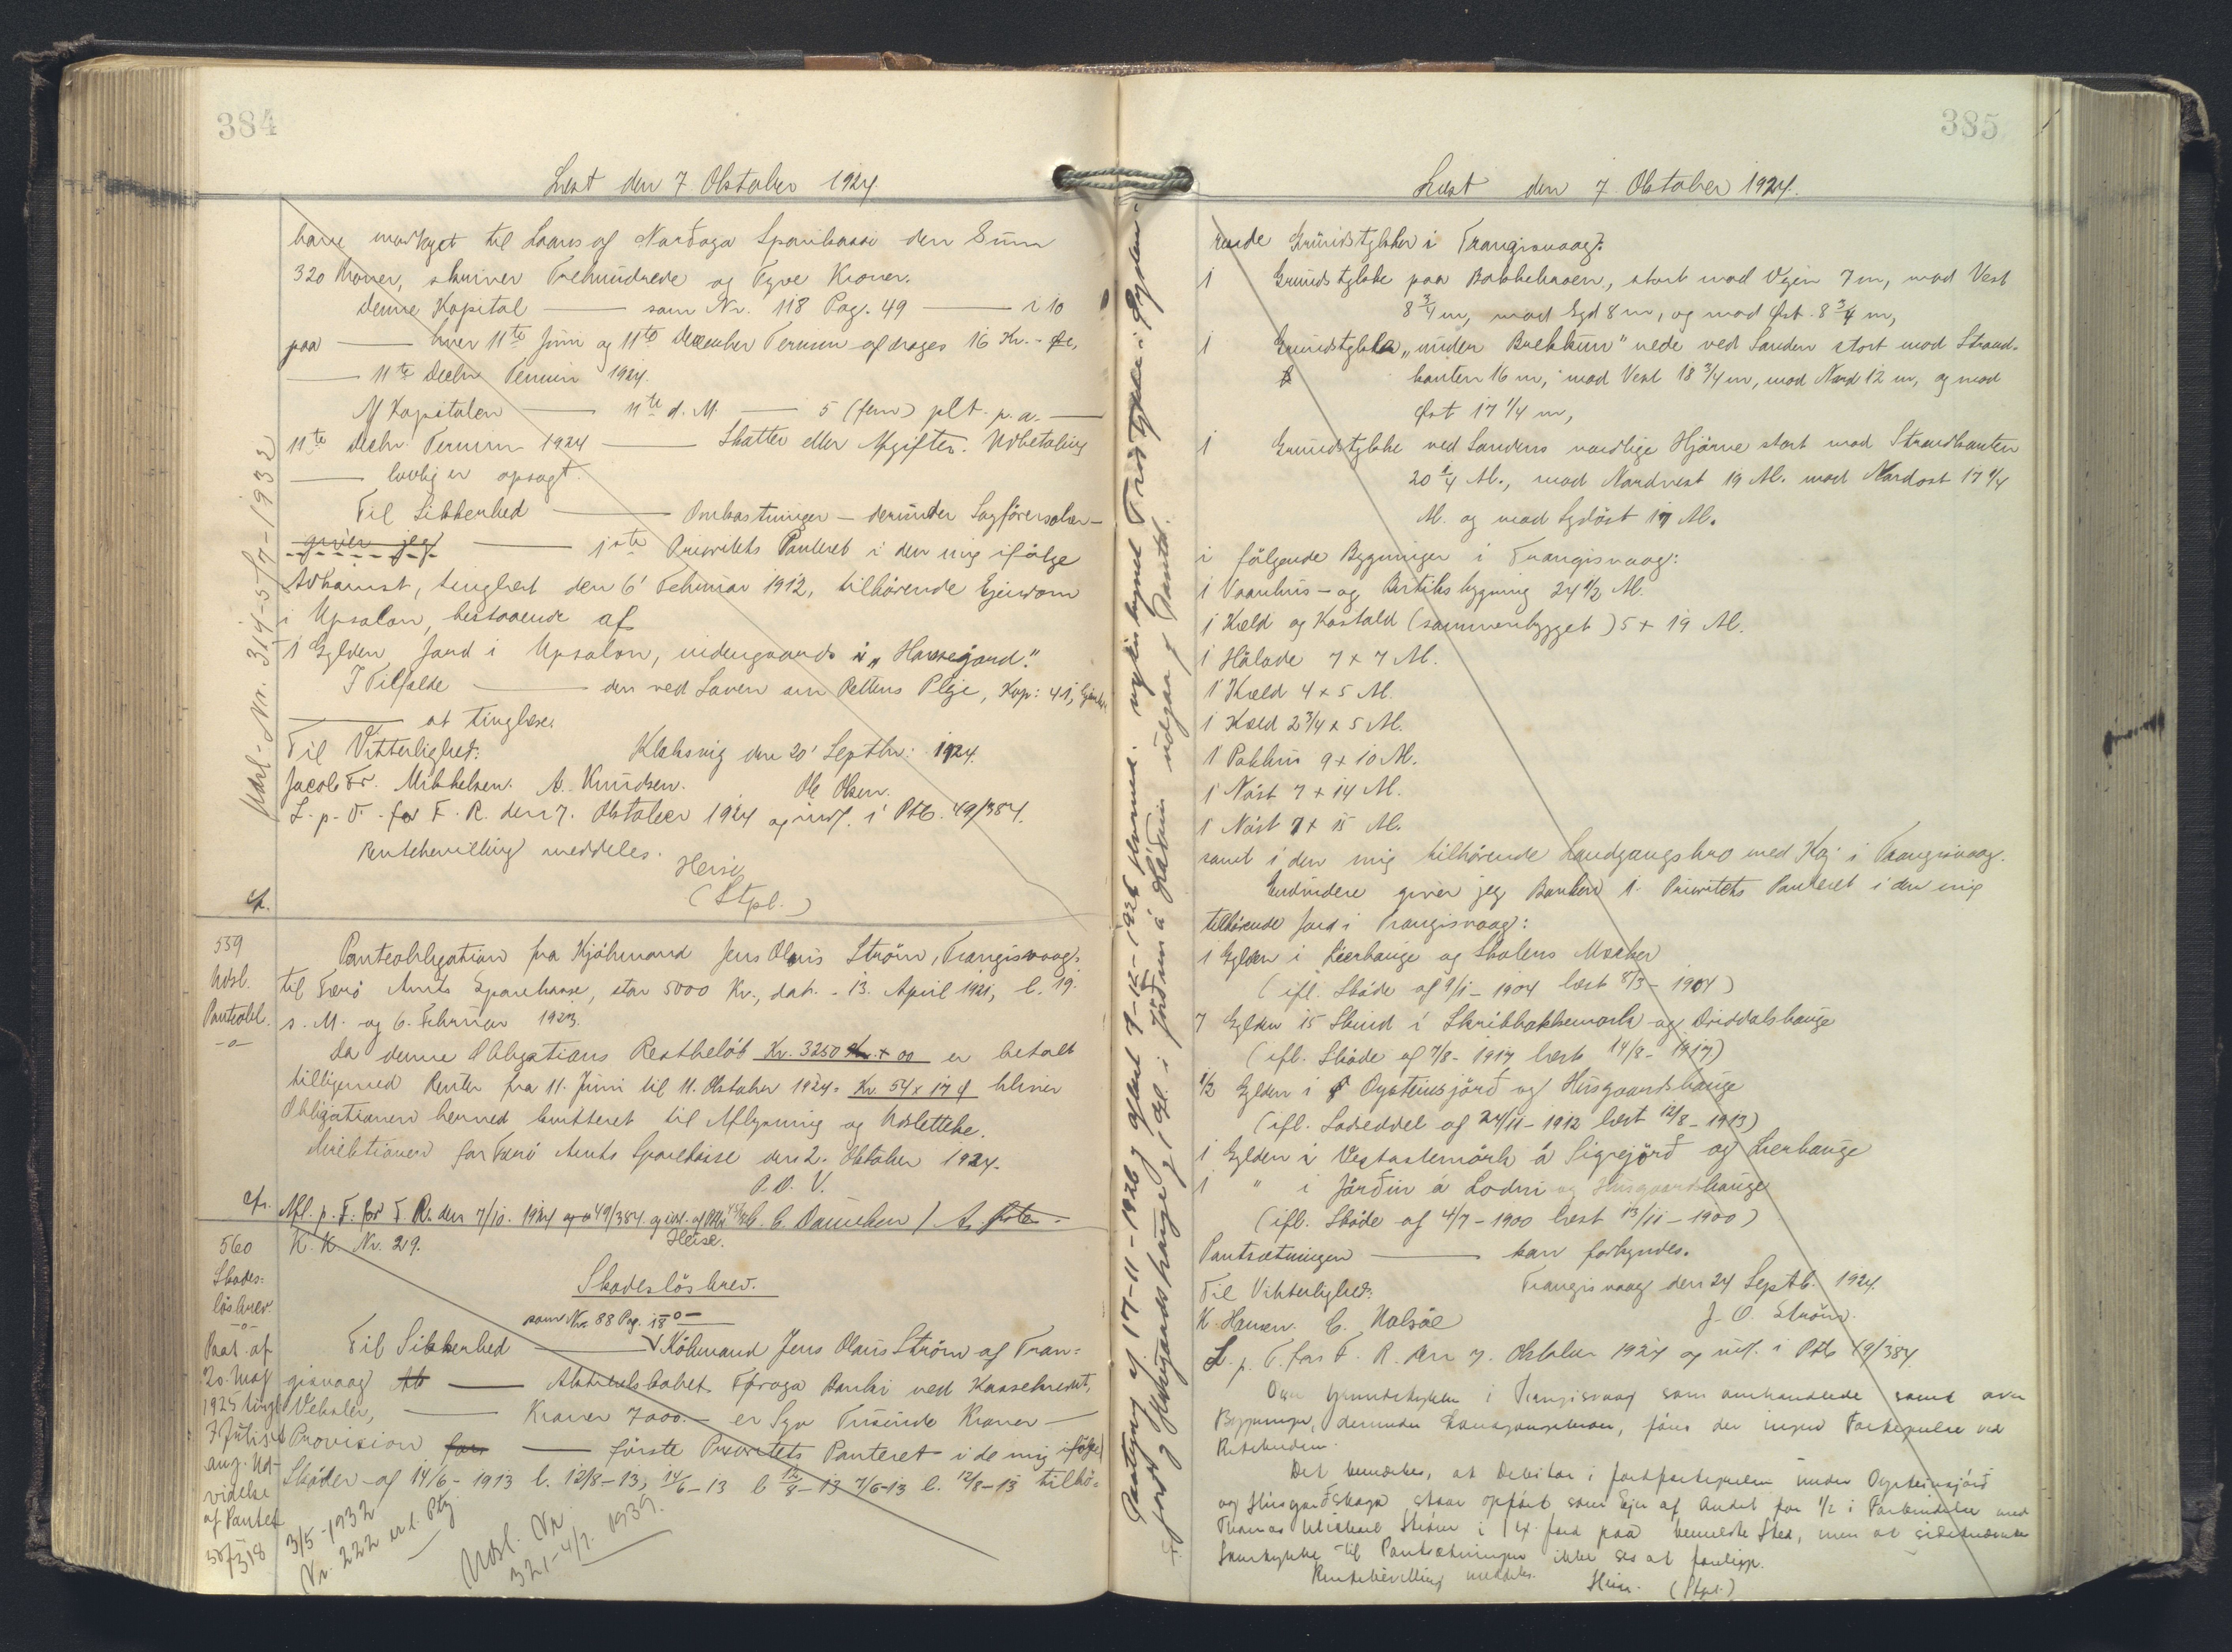 384
Læst den 7 Oktober 1924.
have modtaget til Laans af Norðoya Sparikassi den Sum
320 Kroner, skriver Trehundrede og Tyve Kroner.
Denne Kapital — som Nr. 118 Pag. 49 — i 10
paa — hver 11te Juni og 11te December Termin afdrages 16 Kr. - Øre,
— 11te Decbr Termin 1924.
Af Kapitalen — 11te d. M. — 5 (fem) pCt. p. a. —
11te Decbr. Termin 1924 — Skatter eller Afgifter. Udbetaling
— lovlig er opsagt.
Til Sikkerhed — Omkostninger – derunder Sagførersalær –
giver jeg — 1ste Prioritets Panteret i den mig ifølge
Adkomst, tinglæst den 6' Februar 1912, tilhørende Ejendom
i Upsalon, bestaaende af
1 Gylden Jord i Upsalon, undergaards i „Hansegaard."
I Tilfælde — den ved Loven om Rettens Pleje, Kap: 41,
— at tinglæse.
Til Vitterlighed: Klaksvig den 20' Septbr: 1924.
Jacob Fr. Mikkelsen. A. Knudsen. Ole Olsen.
L. p. T. for F. R. den 7. Oktober 1924 og indf. i Ptb. 49/384.
Rentebevilling meddeles.
Heise
(Stpl.)
cfr.
Udsl. Nr. 314-5/7-1932
559
Udsl.
Panteobl.
-o-
Panteobligation fra Kjøbmand Jens Olaus Strøm, Trangisvaag,
til Færø Amts Sparekasse, stor 5000 Kr., dat. 13. April 1921, l. 19.
s. M. og 6. Februar 1923.
Da denne Obligations Restbeløb Kr. 3250 + 00 er betalt
tilligemed Renter fra 11. Juni til 11. Oktober 1924 = Kr. 54 x 17 Ø bliver
Obligationen herved kvitteret til Aflysning og Udslettelse.
Direktionen for Færø Amts Sparekasse den 2. Oktober 1924.
P. D. V.
cfr. Afl. p. T. for F. R. den 7/10. 1924 49/384 C. C. Danielsen /
Heise.
560
Skades-
løsbrev
-o-
K. K. Nr. 29.
Skadesløsbrev.
-o-
som Nr. 88 Pag. 18
Til Sikkerhed — Købmand Jens Olaus Strøm af Tran-
gisvaag — Aktieselskabet Føroya Banki ved Kassekredit,
Veksler, — Kroner 7000.– er Syv Tusinde Kroner —
Provision for — første Prioritets Panteret i de mig ifølge
Skøder af 14/6 - 1913 l. 12/8 - 13, 14/6 - 13 l 12/8 - 13 7/6-13 l. 12/8 - 13 tilhø-
Paat. af
20. Maj
1925 tingl
7 Juli s. A.
ang. Ud-
videlse
af Pantet
50/318
3/5-1932
Nr. 222
Udsl. Nr
321-4/7. 1939.
385
Læst den 7. Oktober 1924.
rende Grundstykker i Trangisvaag:
1 Grundstykke paa Bakkehaven, stort mod Vejen 7 m, mod Vest
8 3/4 m, mod Syd 8 m, og mod Øst 8 3/4 m,
1 Grundstykke „undir Brekkun" nede ved Sanden stort mod Strand-
kanten 16 m, mod Vest 18 3/4 m, mod Nord 12 m, og mod
Øst 17 1/4 m,
1 Grundstykke ved Sandens nordlige Hjørne stort mod Strandkanten
20 1/4 M., mod Nordvest 19 M. mod Nordost 17 1/4
M. og mod Sydöst 17 M.
i følgende Bygninger i Trangisvaag:
1 Vaanhus- og Butiksbygning 24 1/2 M.
1 Kæld og Kostald (sammenbygget) 5 x 19 M.
1 Hølade 7 x 7 M.
1 Kæld 4 x 5 M.
1 Kæld 2 3/4 x 5 M.
1 Pakhus 9 x 10 M.
1 Nöst 7 x 14 M.
1 Nöst 7 x 15 M.
samt i den mig tilhørende Landgangsbro med Kaj i Trangisvaag.
Endvidere giver jeg Banken 1. Prioritets Panteret i den mig
tilhørende Jord i Trangisvaag:
1 Gylden i Lierhauge og Skolens Marker
(ifl. Skøde af 9/1 - 1904 læst 8/3 - 1904)
7 Gylden 15 Skind i Skribbakkemark og Driddalshauge
(ifl. Skøde af 7/8 - 1917 læst 14/8 - 1917)
1/2 Gylden i Oysteinsjörð og Husgaardshauge
(ifl. Lodseddel af 24/11 - 1912 læst 12/8 - 1913)
1 Gylden i Vestastemörk á Sigrejörð og Lierhauge
1 " i Jørðin á Lodni og Husgaardshauge
(ifl. Skøde af 4/7 - 1900 læst 13/11 - 1900)
Pantsætningen — kan forkyndes.
Trangisvaag den 24 Septb. 1924.
Til Vitterlighed:
K Hansen. C. Nolsøe J. O. Strøm.
L. p. T. for F. R. den 7. Oktober 1924 og indf. i Ptb 49/384.
Om Grundstykker i Trangisvaag som omhandlede samt om
Bygninger, derunder Landgangsbroen, føres der ingen Fortegnelse ved
Retsbetjenten.
Det bemærkes, at Debitor i Jordfortegnelsen under Oysteinsjörð
og Husgarðshaga staar opført som Ejer af Andet for 1/2 i Forbindelse med
Thomas Michael Strøm i 1 Gl. Jord paa bemeldte Sted, men at sidstnævntes
Samtykke til Pantsætningen ikke ses at foreligge.
Rentebevilling meddeles.
Heise. (Stpl.)